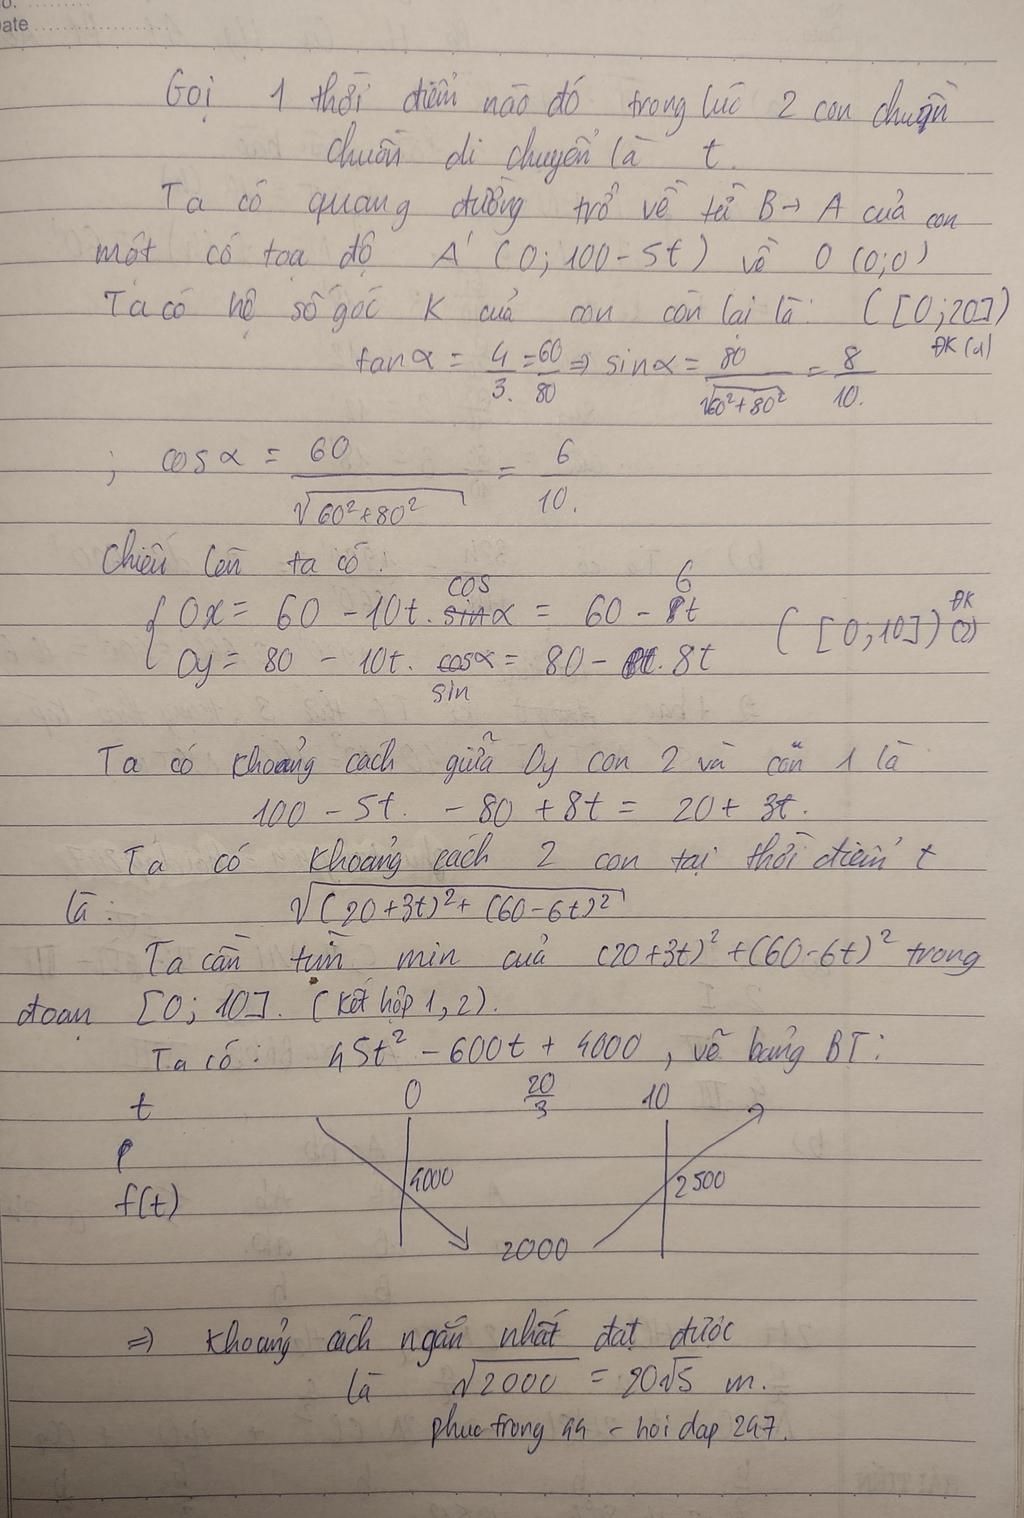 No.
Date
Gọi 1 thời điểm nào đó trong lúc 2 con chuồn
chuồn di chuyển là t.
Ta có quang đường trở về từ B → A của con
một có tọa độ A' (0; 100 - 5t) về O (0;0)
Ta có hệ số góc K của con còn lại là: ([0; 20])
ĐK (1)
tan α = 4/3 = 60/80 => sin α = 80/√(60²+80²) = 8/10.
; cos α = 60/√(60²+80²) = 6/10.
Chiếu lên ta có:
{ Ox = 60 - 10t. cos α = 60 - 6t
([0; 10]) ĐK (2)
Oy = 80 - 10t. sin = 80 - 8t
Ta có khoảng cách giữa Oy con 2 và con 1 là
100 - 5t - 80 + 8t = 20 + 3t.
Ta có khoảng cách 2 con tại thời điểm t
là: √((20+3t)² + (60-6t)²)
Ta cần tìm min của (20+3t)² + (60-6t)² trong
đoạn [0; 10]. (kết hợp 1, 2).
Ta có: 45t² - 600t + 4000, vẽ bảng BT:
t 0 20/3 10
f(t) 4000 2000 2500
=> khoảng cách ngắn nhất đạt được
là √2000 = 20√5 m.
phuc trong 44 - hoi dap 247.